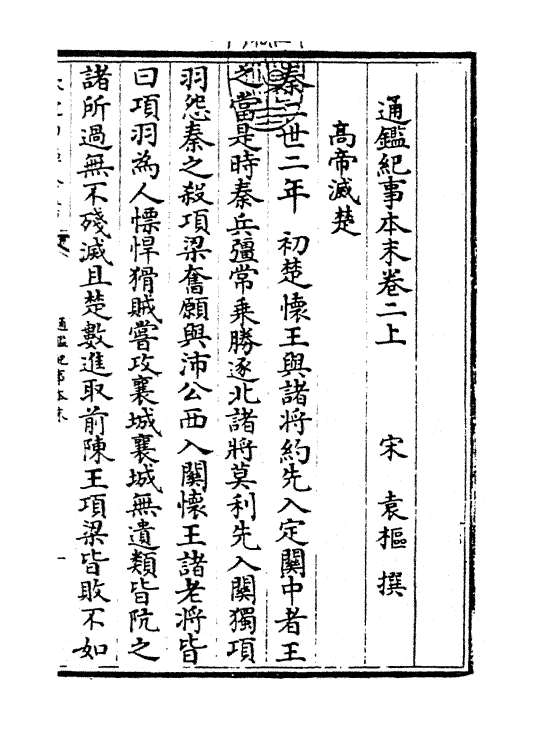 通鑑紀事本末卷二上　宋　袁樞　撰
高帝滅楚
秦二世二年　初楚懷王與諸將約先入定關中者王
之當是時秦兵彊常乗勝逐北諸將莫利先入關獨項
羽怨秦之殺項梁奮願與沛公西入關懷王諸老將皆
曰項羽為人慓悍猾賊嘗攻襄城襄城無遺類皆阬之
諸所過無不殘滅且楚數進取前陳王項梁皆敗不如
通鑑紀事本末
一